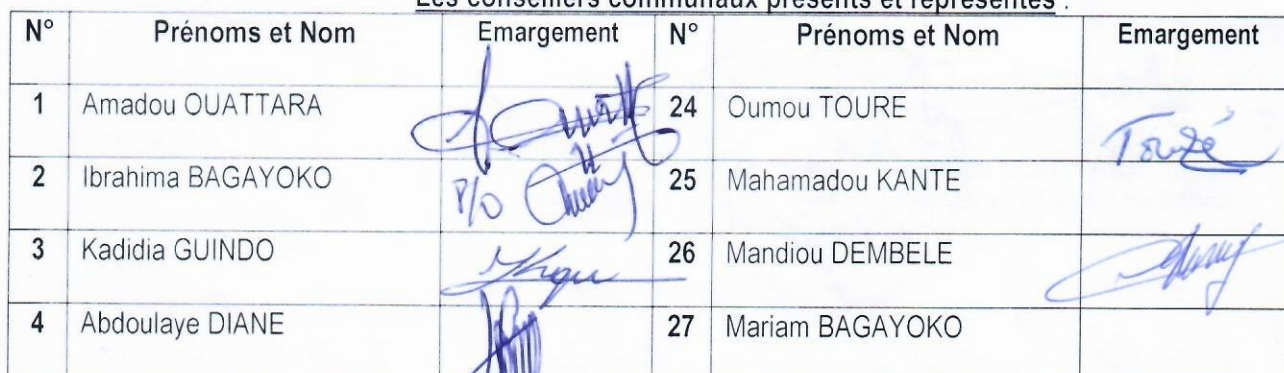 Les conseillers communaux présents et représentés :
N° Prénoms et Nom Emargement N° Prénoms et Nom Emargement
1 Amadou OUATTARA 24 Oumou TOURE Touré
2 Ibrahima BAGAYOKO P/O 25 Mahamadou KANTE
3 Kadidia GUINDO 26 Mandiou DEMBELE
4 Abdoulaye DIANE 27 Mariam BAGAYOKO